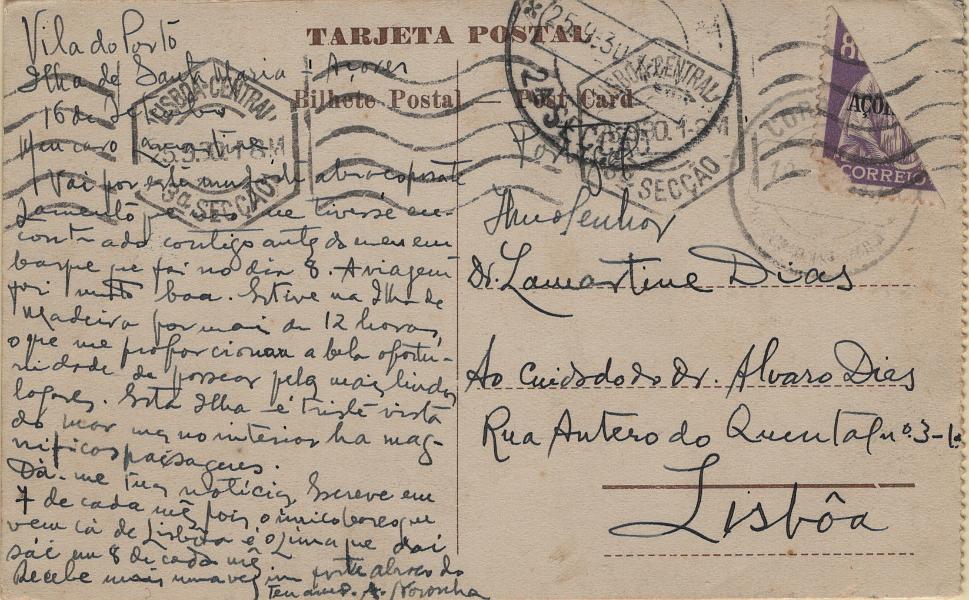 TARJETA POSTAL
Bilhete Postal — Post Card
Vila do Porto
Ilha de Santa Maria - Açores
16 de
Meu caro
Vai por este um forte abraço
Lamentó não me tivesse en-
contrado contigo antes do meu em-
barque que foi no dia 8. A viagem
foi muito boa. Estive na Ilha da
Madeira por mais de 12 horas,
o que me proporcionou a bela oportu-
nidade de passear pelos mais lindos
logares. Esta Ilha é triste vista
do mar mas no interior ha mag-
nificas paisagens.
Dá-me tuas notícias. Escreve em
7 de cada mês pois o unico barco que
vem cá de Lisboa é o Lima que daí
sáe em 8 de cada mês
Recebe mais uma vez um forte abraço do
A. Noronha
Ilmo Senhor
Dr. Lamartine Dias
Ao Cuidado do Dr. Alvaro Dias
Rua Antero do Quental nº 3-1º
Lisbôa
LISBOA-CENTRAL
3a SECÇÃO
25.9.30
2a SECÇÃO
LISBOA-CENTRAL
SECÇÃO
8
AÇOR
CORREIO